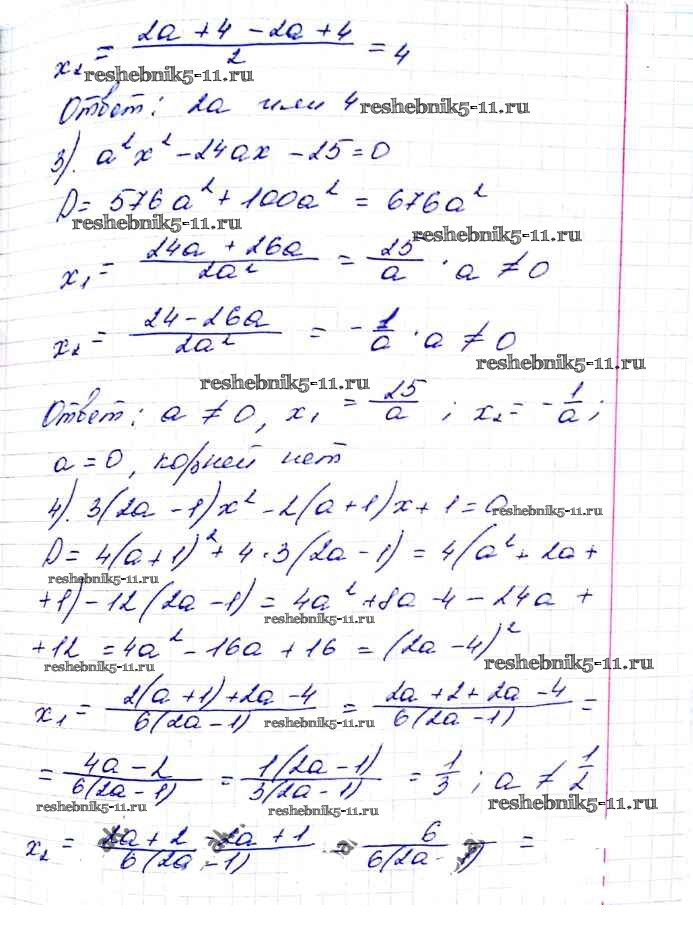 x₂ = (2a + 4 - 2a + 4)/2 = 4
reshebnik5-11.ru
Ответ: 2a или 4 reshebnik5-11.ru
3). a²x² - 24ax - 25 = 0
D = 576a² + 100a² = 676a²
reshebnik5-11.ru reshebnik5-11.ru
x₁ = (24a + 26a)/2a² = 25/a · a ≠ 0
x₂ = (24 - 26a)/2a² = -1/a · a ≠ 0
reshebnik5-11.ru
reshebnik5-11.ru
Ответ: a ≠ 0, x₁ = 25/a ; x₂ = -1/a ;
a = 0, корней нет
4). 3(2a - 1)x² - 2(a + 1)x + 1 = 0
reshebnik5-11.ru
D = 4(a + 1)² + 4 · 3(2a - 1) = 4(a² + 2a +
reshebnik5-11.ru
+ 1) - 12(2a - 1) = 4a² + 8a - 4 - 24a +
reshebnik5-11.ru
+ 12 = 4a² - 16a + 16 = (2a - 4)²
reshebnik5-11.ru reshebnik5-11.ru
x₁ = (2(a + 1) + 2a - 4)/6(2a - 1) = (2a + 2 + 2a - 4)/6(2a - 1) =
reshebnik5-11.ru
= (4a - 2)/6(2a - 1) = 1(2a - 1)/3(2a - 1) = 1/3 ; a ≠ 1/2
reshebnik5-11.ru reshebnik5-11.ru reshebnik5-11.ru
x₂ = (2a + 2 - 2a + 1)/6(2a - 1) = 6/6(2a - 1) =